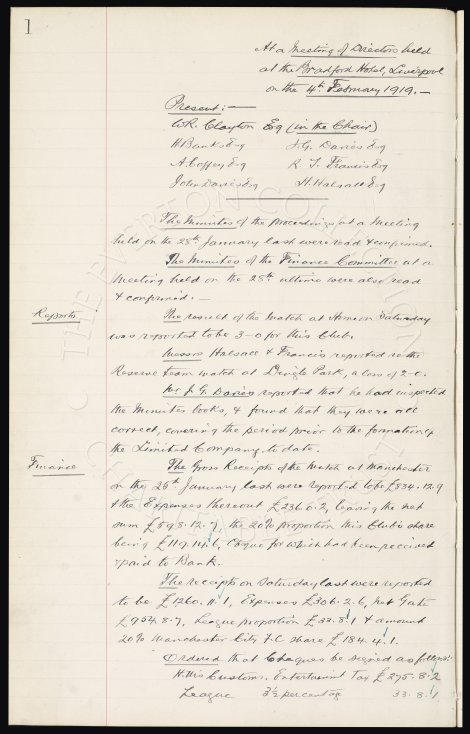 1
At a Meeting of Directors held
at the Bradford Hotel, Liverpool
on the 4th February 1919. —
Present: —
W.R. Clayton Esq (in the Chair)
H Banks Esq J.G. Davies Esq
A. Coffey Esq R T. Francis Esq
John Davies Esq H. Halsall Esq
The Minutes of the proceedings at a Meeting
held on the 28th January last were read & confirmed.
The Minutes of the Finance Committee at a
Meeting held on the 28th ultimo were also read
& confirmed. —
Reports.
The result of the Match at Home on Saturday
was reported to be 3-0 for this Club.
Messrs Halsall & Francis reported re the
Reserve Team match at Dingle Park, a loss of 2-0.
Mr J. G. Davies reported that he had inspected
the Minutes books, & found that they were all
correct, covering the period prior to the formation of
the Limited Company, to date.
Finance
The Gross Receipts of the Match at Manchester
on the 25th January last were reported to be £834.12.9
& the Expenses thereout £236.0.2, leaving the net
sum £598.12.7, the 20% proportion this Club's share
being £119.14.6, Cheque for which had been received
& paid to Bank.
The receipts on Saturday last were reported
to be £1260.11.1, Expenses £306.2.6, net Gate
£954.8.7, League proportion £33.8.1 & amount
20% Manchester City F.C share £184.4.1.
Ordered that Cheques be signed as follows:
H.M's Customs. Entertainment Tax £295.8.2
League 3½ percentage 33.8.1